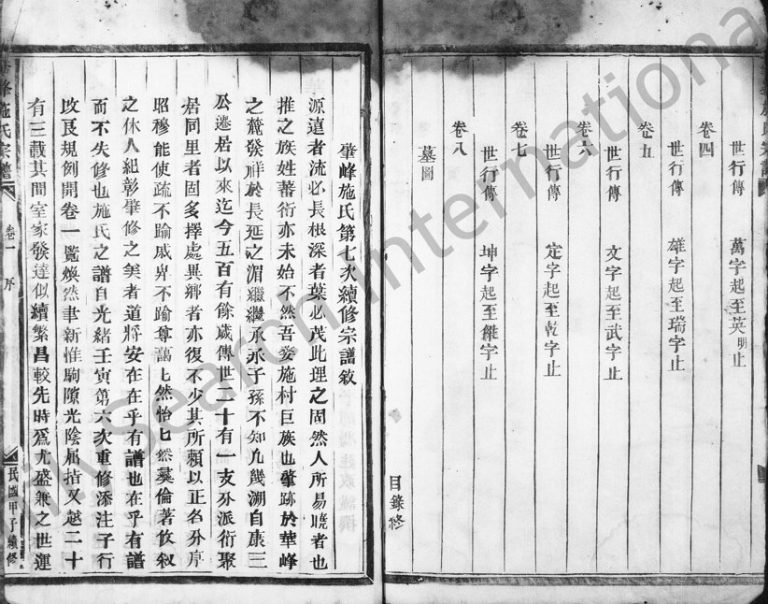 卷四
世行傳 萬字起至英明止
卷五
世行傳 雄字起至瑞字止
卷六
世行傳 文字起至武字止
卷七
世行傳 定字起至乾字止
卷八
世行傳 坤字起至字止
墓圖
目錄終
肇峰施氏第七次續修宗譜敘
源遠者流必長根深者葉必茂此理之固然人所易曉者也
推之族姓蕃衍亦未始不然吾婺施村巨族也肇跡於華峰
之麓發祥於長延之湄繼繼承承子孫不知凡幾溯自康三
公遷居以來迄今五百有餘歲傳世二十有一支分派衍聚
居同里者固多擇處異鄉者亦復不少其所賴以正名分序
昭穆能使疏不踰戚卑不踰尊藹匕然怡匕然彝倫著攸敘
之休人紀彰肇修之美者道將安在在乎有譜也在乎有譜
而不失修也施氏之譜自光緒壬寅第六次重修添注子行
改良規例開卷一覽煥然聿新惟駒隙光陰屈指又越二十
有三載其間室家發達似續繁昌較先時爲尤盛兼之世運
峰施氏宗譜
卷一
序
民國甲子續修
International